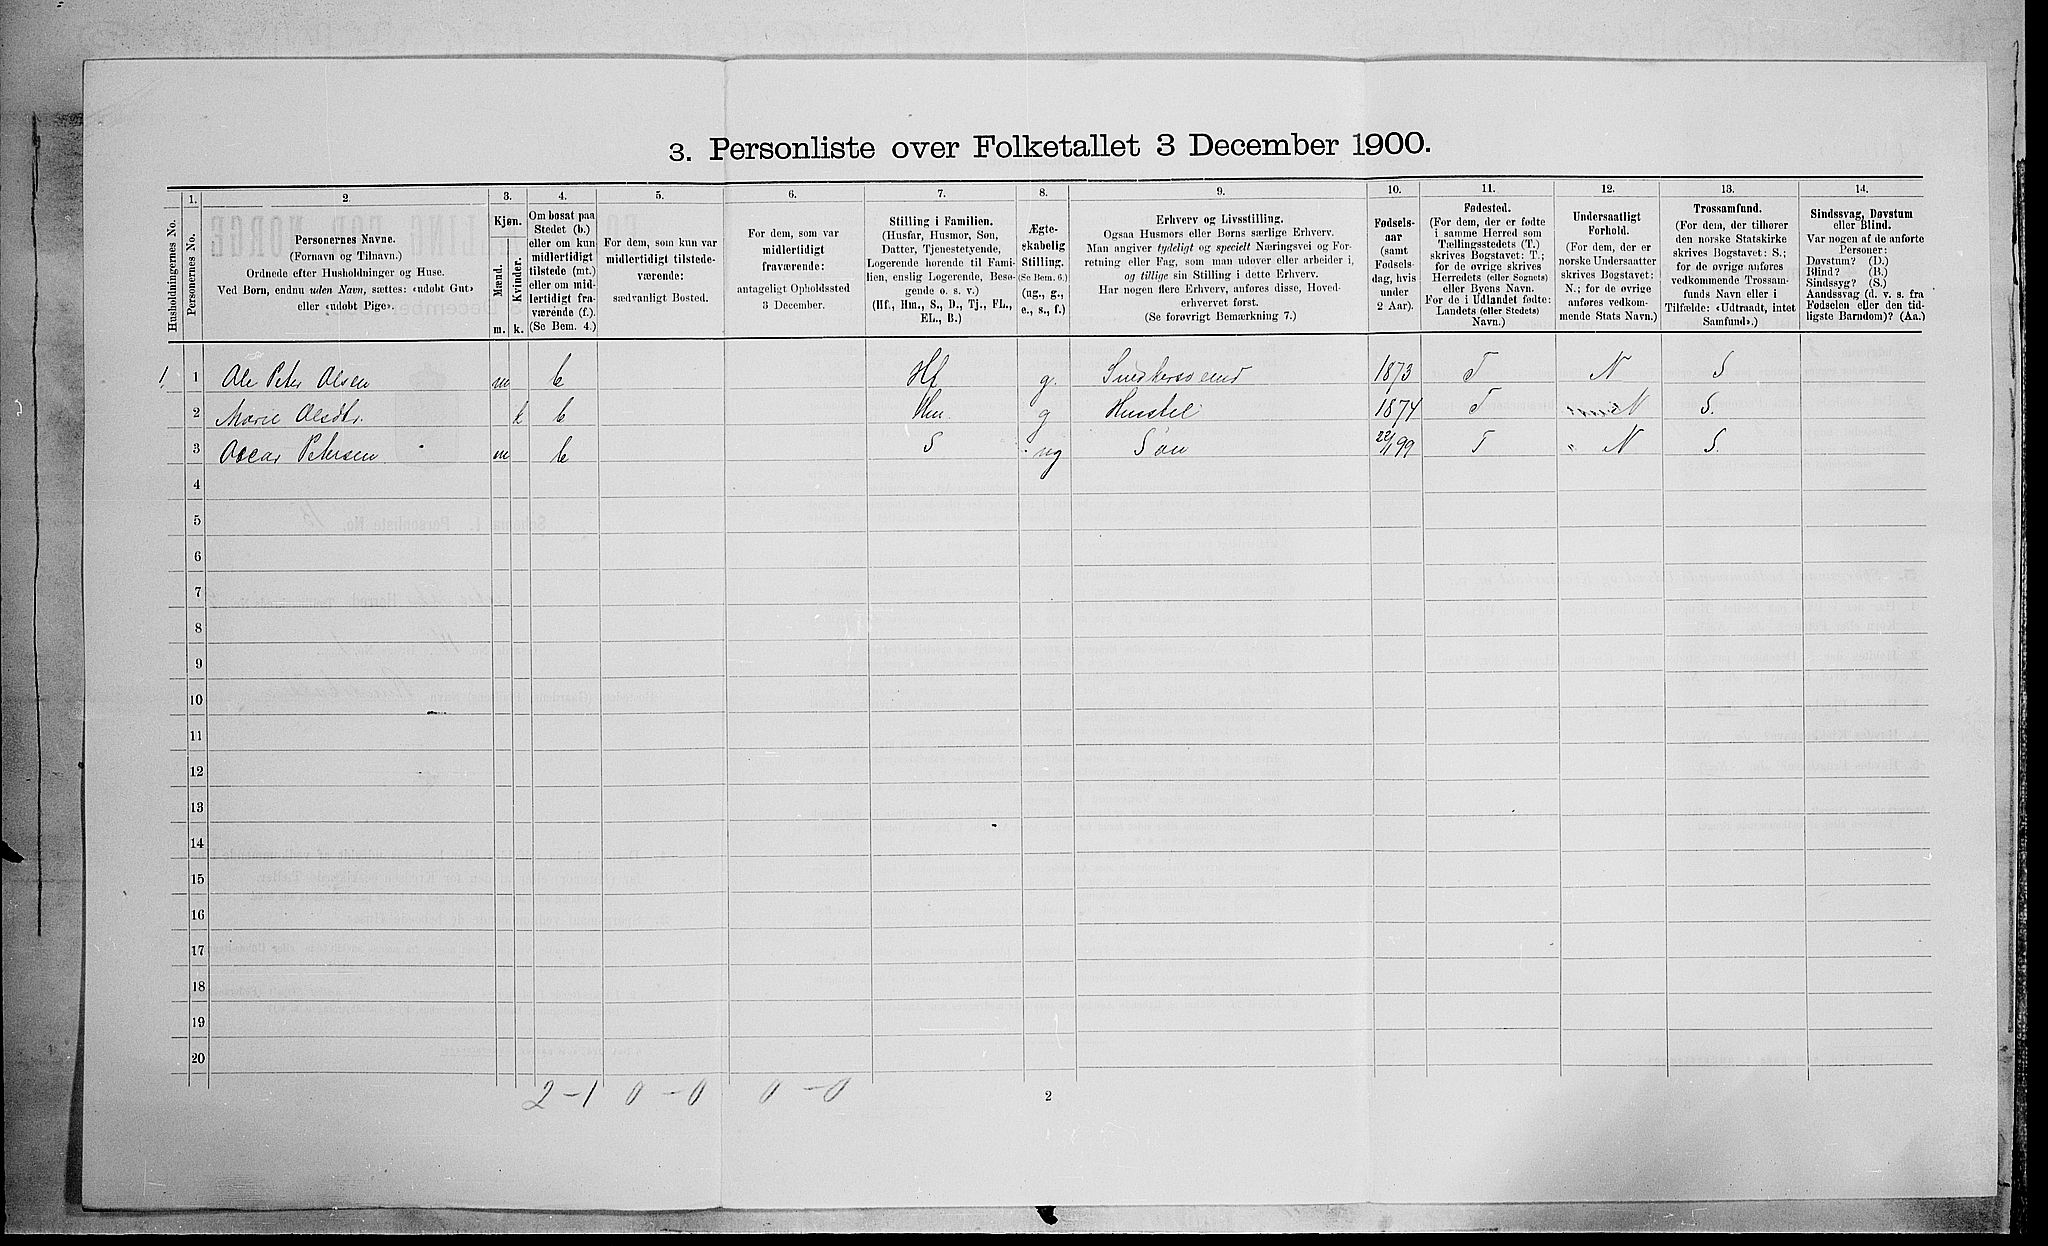 3. Personliste over Folketallet 3 December 1900.
1. 2. 3. 4. 5. 6. 7. 8. 9. 10. 11. 12. 13. 14.
Husholdningernes No.
Personernes No.
Personernes Navne.
(Fornavn og Tilnavn.)
Ordnede efter Husholdninger og Huse.
Ved Børn, endnu uden Navn, sættes: «udøbt Gut»
eller «udøbt Pige».
Kjøn.
Mænd.
Kvinder.
m. k.
Om bosat paa
Stedet (b.)
eller om kun
midlertidigt
tilstede (mt.)
eller om mid-
lertidigt fra-
værende (f.).
(Se Bem. 4.)
For dem, som kun var
midlertidigt tilstede-
værende:
sædvanligt Bosted.
For dem, som var
midlertidigt
fraværende:
antageligt Opholdssted
3 December.
Stilling i Familien.
(Husfar, Husmor, Søn,
Datter, Tjenestetyende,
Logerende hørende til Fami-
lien, enslig Logerende, Besø-
gende o. s. v.)
(Hf., Hm., S., D., Tj., FL.,
EL., B.)
Ægte-
skabelig
Stilling.
(Se Bem. 6.)
(ug., g.,
e., s., f.)
Erhverv og Livsstilling.
Ogsaa Husmors eller Børns særlige Erhverv.
Man angiver tydeligt og specielt Næringsvei og For-
retning eller Fag, som man udøver eller arbeider i,
og tillige sin Stilling i dette Erhverv.
Har nogen flere Erhverv, anføres disse, Hoved-
erhvervet først.
(Se forøvrigt Bemærkning 7.)
Fødsels-
aar
(samt
Fødsels-
dag, hvis
under
2 Aar).
Fødested.
(For dem, der er fødte
i samme Herred som
Tællingsstedets (T.)
skrives Bogstavet: T.;
for de øvrige skrives
Herredets (eller Sognets)
eller Byens Navn.
For de i Udlandet fødte:
Landets (eller Stedets)
Navn.)
Undersaatligt
Forhold.
(For dem, der er
norske Undersaatter
skrives Bogstavet:
N.; for de øvrige
anføres vedkom-
mende Stats Navn.)
Trossamfund.
(For dem, der tilhører
den norske Statskirke
skrives Bogstavet: S.;
for de øvrige anføres
vedkommende Trossam-
funds Navn eller i
Tilfælde: «Udtraadt, intet
Samfund».)
Sindssvag, Døvstum
eller Blind.
Var nogen af de anførte
Personer:
Døvstum? (D.)
Blind? (B.)
Sindssyg? (S.)
Aandssvag (d. v. s. fra
Fødselen eller den tid-
ligste Barndom)? (Aa.)
1 1 Ole Peter Olsen m b Hf g. Snedkersvend 1873 T N S
2 Marie Olsdtr. k b Hm. g Husstel 1874 T N S.
3 Oscar Petersen m b S ug Søn 99 T N S.
4
5
6
7
8
9
10
11
12
13
14
15
16
17
18
19
20
2-1 0-0 0-0
2